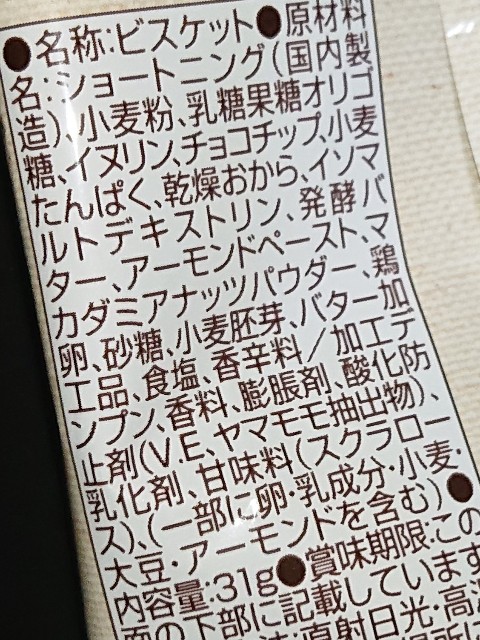 ●名称:ビスケット●原材料
名:ショートニング(国内製
造)、小麦粉、乳糖果糖オリゴ
糖、イヌリン、チョコチップ、小麦
たんぱく、乾燥おから、イソマ
ルトデキストリン、発酵バ
ター、アーモンドペースト、マ
カダミアナッツパウダー、鶏
卵、砂糖、小麦胚芽、バター加
工品、食塩、香辛料/加工デ
ンプン、香料、膨脹剤、酸化防
止剤(V.E、ヤマモモ抽出物)、
乳化剤、甘味料(スクラロー
ス)、(一部に卵・乳成分・小麦・
大豆・アーモンドを含む)●
内容量:31g●賞味期限:この
面の下部に記載しています
直射日光・高温